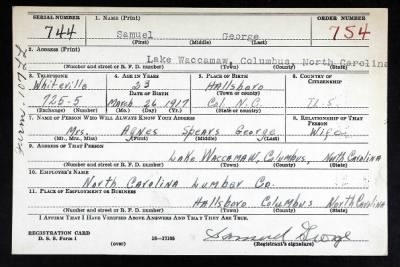 SERIAL NUMBER 1. NAME (Print) ORDER NUMBER
744 Samuel George 754
(First) (Middle) (Last)
2. ADDRESS (Print)
Lake Waccamaw, Columbus, North Carolina
(Number and street or R. F. D. number) (Town) (County) (State)
3. TELEPHONE 4. AGE IN YEARS 5. PLACE OF BIRTH 6. COUNTRY OF CITIZENSHIP
Whiteville 23 Hallsboro
DATE OF BIRTH (Town or county)
725-5 March 26 1917 Col. N.C. U.S.
(Exchange) (Number) (Mo.) (Day) (Yr.) (State or country)
7. NAME OF PERSON WHO WILL ALWAYS KNOW YOUR ADDRESS 8. RELATIONSHIP OF THAT PERSON
Mrs. Agnes Spears George Wife
(Mr., Mrs., Miss) (First) (Middle) (Last)
9. ADDRESS OF THAT PERSON
Lake Waccamaw, Columbus, North Carolina
(Number and street or R. F. D. number) (Town) (County) (State)
10. EMPLOYER'S NAME
North Carolina Lumber Co.
11. PLACE OF EMPLOYMENT OR BUSINESS
Hallsboro Columbus North Carolina
(Number and street or R. F. D. number) (Town) (County) (State)
I AFFIRM THAT I HAVE VERIFIED ABOVE ANSWERS AND THAT THEY ARE TRUE.
REGISTRATION CARD
D. S. S. Form 1 (over) 16-17105 Samuel George
(Registrant's signature)